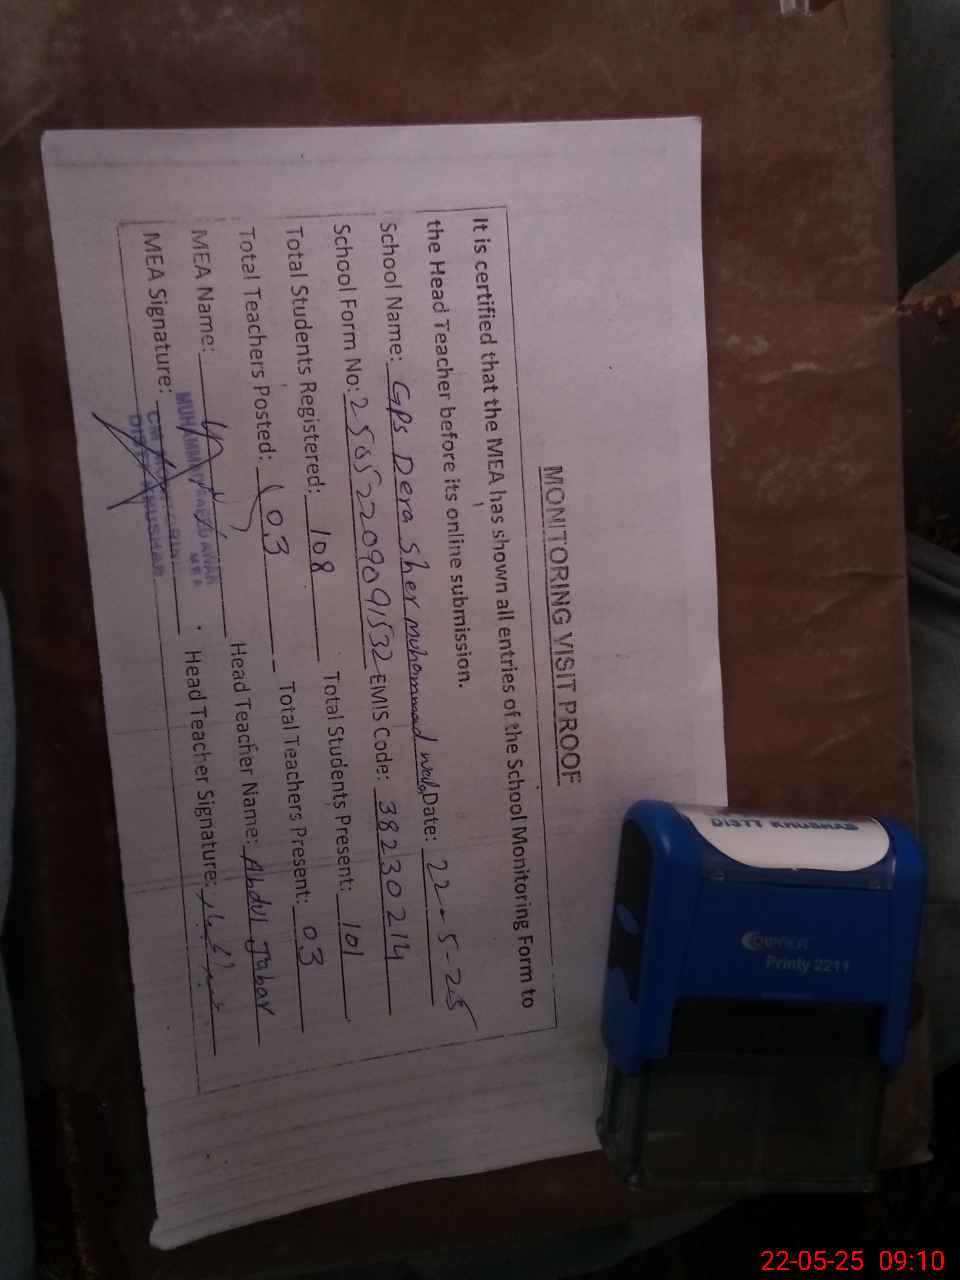 MONITORING VISIT PROOF
It is certified that the MEA has shown all entries of the School Monitoring Form to
the Head Teacher before its online submission.
School Name: GPS Dera Sher Muhammad Date: 22-5-25
School Form No: 25052209091532 EMIS Code: 38230214
Total Students Registered: 108 Total Students Present: 101
Total Teachers Posted: 03 Total Teachers Present: 03
MEA Name: Head Teacher Name: Abdul Jabar
MEA Signature: Head Teacher Signature:
MUHAMMAD
MEA
DISTT KHUSHAB
DISTT KHUSHAB
Printy 2211
22-05-25 09:10